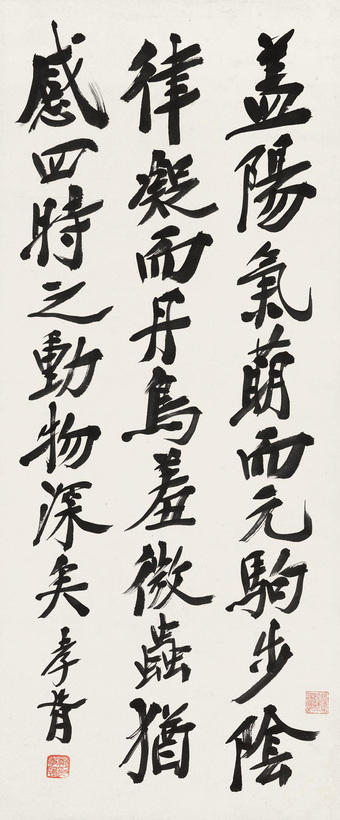 盖陽氣萌而元駒步陰
律凝而丹鳥羞微蟲猶
感四時之動物深矣
孝胥